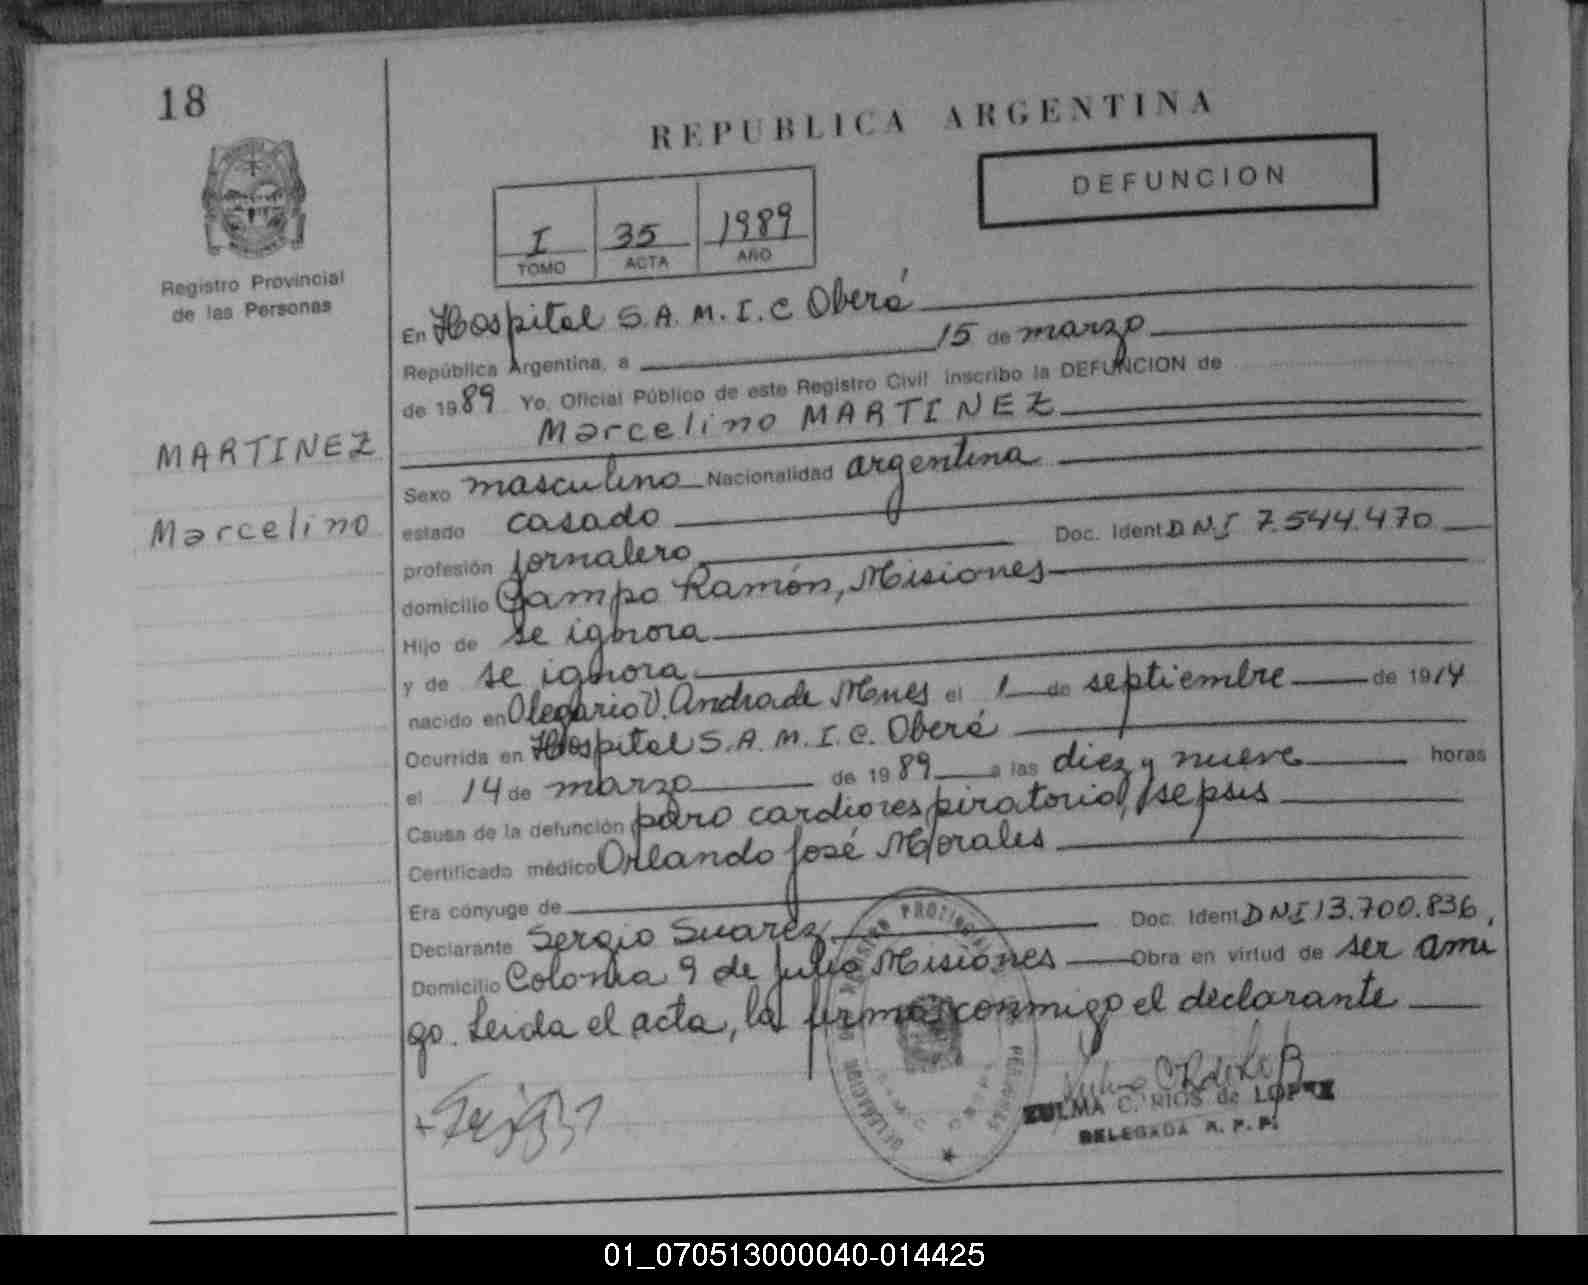 18
REPUBLICA ARGENTINA
DEFUNCION
I 35 1989
TOMO ACTA AÑO
Registro Provincial
de las Personas
MARTINEZ
Marcelino
En Hospital S.A.M.I.C Oberá
República Argentina, a 15 de marzo
de 1989 Yo, Oficial Público de este Registro Civil inscribo la DEFUNCION de
Marcelino MARTINEZ
Sexo masculino Nacionalidad argentina
estado casado
profesión jornalero Doc. Ident DNI 7.544.470
domicilio Campo Ramón, Misiones
Hijo de se ignora
y de se ignora
nacido en Olegario V. Andrade Mnes el 1 de septiembre de 1914
Ocurrida en Hospital S.A.M.I.C. Oberá
el 14 de marzo de 1989 a las diez y nueve horas
Causa de la defunción paro cardiorespiratorio, sepsis
Certificado médico Orlando José Morales
Era cónyuge de
Declarante Sergio Suarez Doc. Ident DNI 13.700.836,
Domicilio Colonia 9 de Julio Misiones Obra en virtud de ser ami
go. Leida el acta, la firma conmigo el declarante
ZULMA C. RIOS de LOPEZ
DELEGADA R. P. P.
01_070513000040-014425